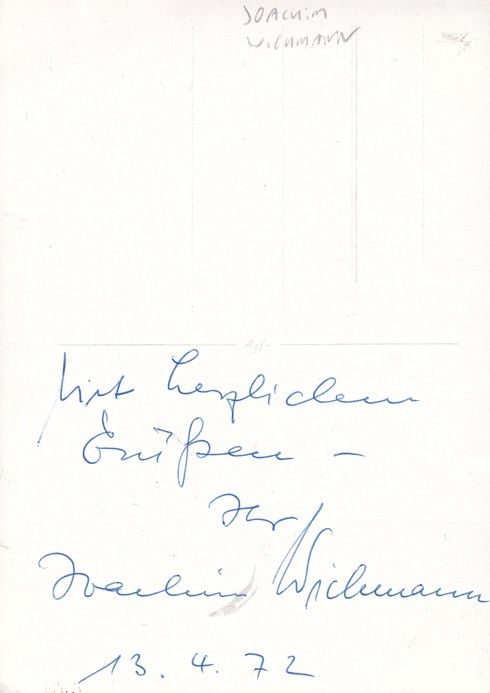 JOACHIM
WICHMANN
Mit herzlichen
Grüßen –
Ihr
Joachim Wichmann
13. 4. 72